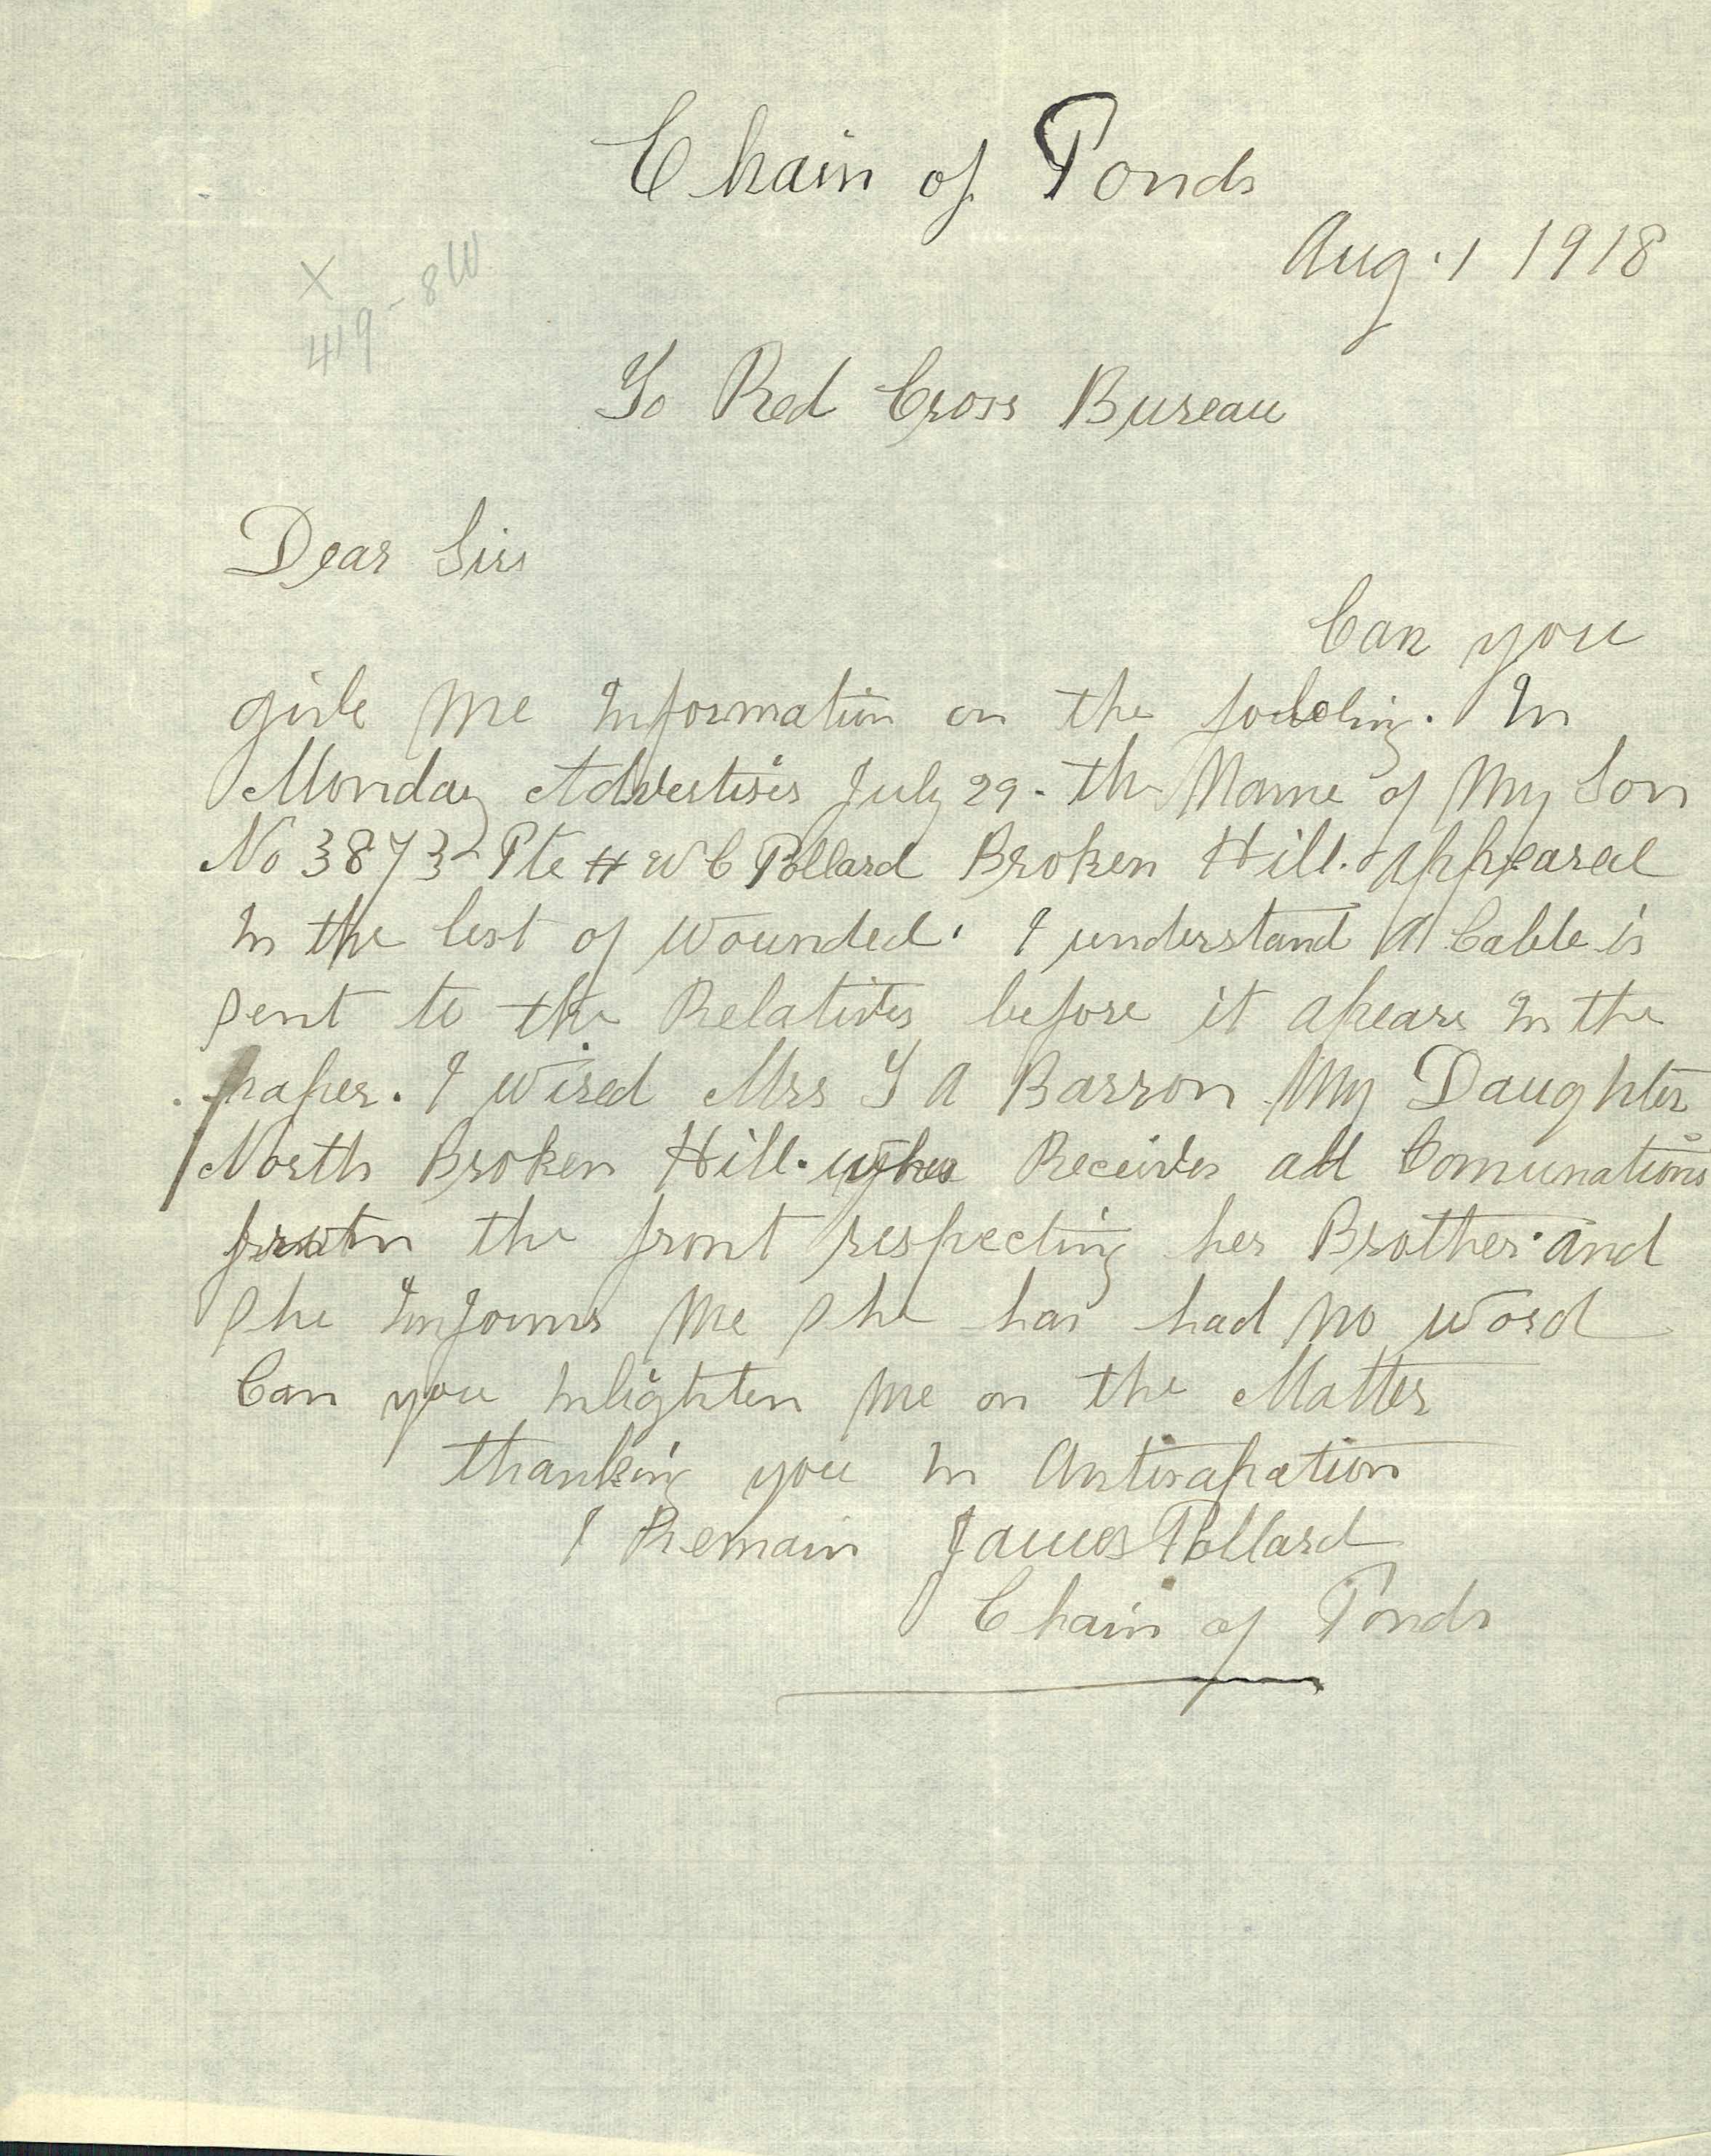 Chain of Ponds
Aug. 1 1918
X
419-8W
To Red Cross Bureau
Dear Sirs
Can you
give me Information on the . In
Monday Advertiser July 29 - the Name of My Son
No 3873 Pte H W C Pollard Broken Hill. appeared
In the list of wounded. I understand A Cable is
sent to the Relatives before it apears In the
paper. I wired Mrs T A Barron My Daughter
North Broken Hill. who Receives all Comunations
from the front respecting her Brother. and
she Imforms Me she has had no word
Can you Inlighten Me on the Matter
thanking you In Anticapation
I Remain James Pollard
Chain of Ponds